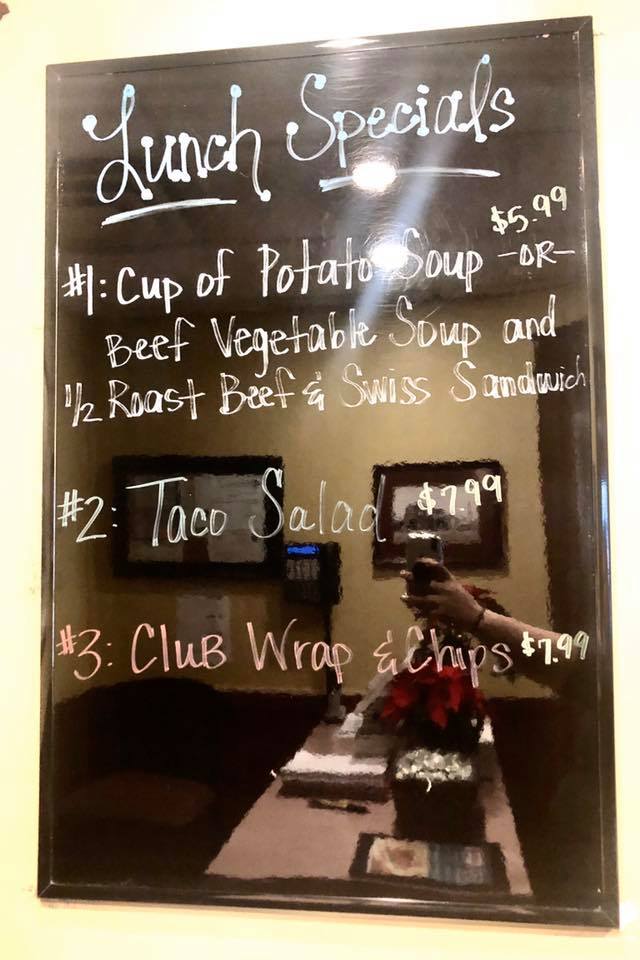 Lunch Specials
$5.99
#1: Cup of Potato Soup -OR-
Beef Vegetable Soup and
1/2 Roast Beef & Swiss Sandwich
#2: Taco Salad $7.99
#3: Club Wrap & Chips $7.99